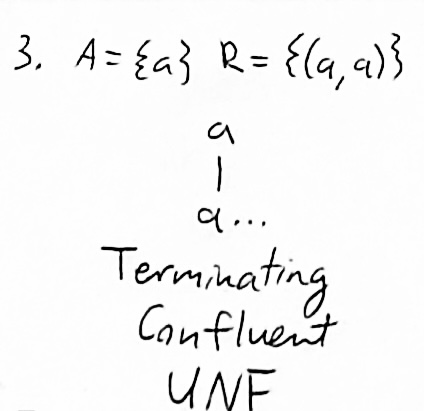 3. A={a} R={(a,a)}
a
|
a...
Terminating
Confluent
UNF